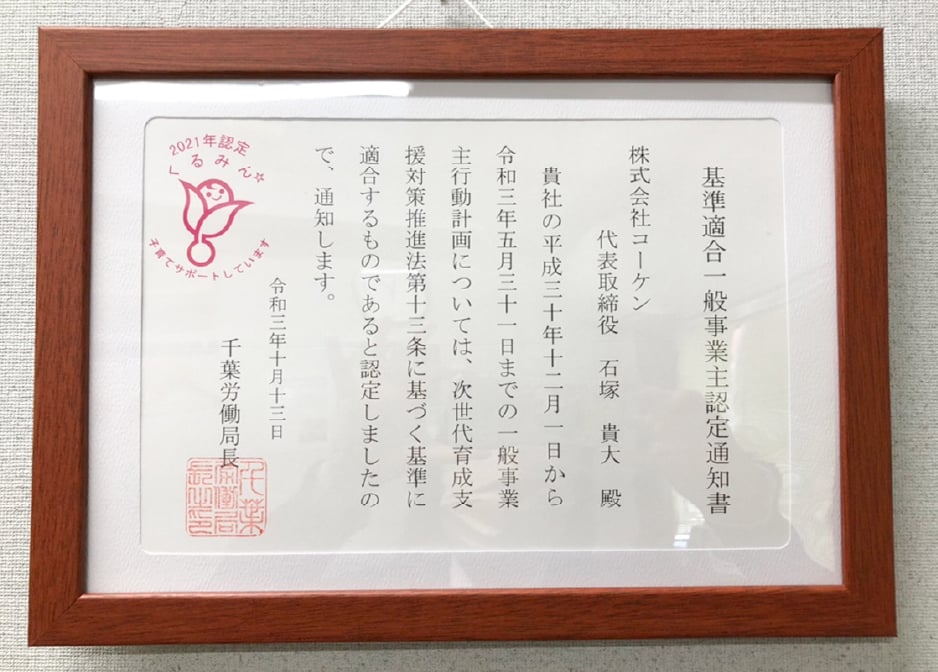 基準適合一般事業主認定通知書
株式会社コーケン
代表取締役 石塚 貴大 殿
貴社の平成三十年十二月一日から
令和三年五月三十一日までの一般事業
主行動計画については、次世代育成支
援対策推進法第十三条に基づく基準に
適合するものであると認定しましたの
で、通知します。
令和三年十月十三日
千葉労働局長
千葉労働局長之印
2021年認定
くるみん
子育てサポートしています